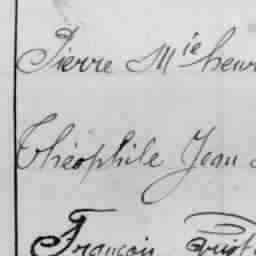 Pierre Mie henr
Théophile Jean
François